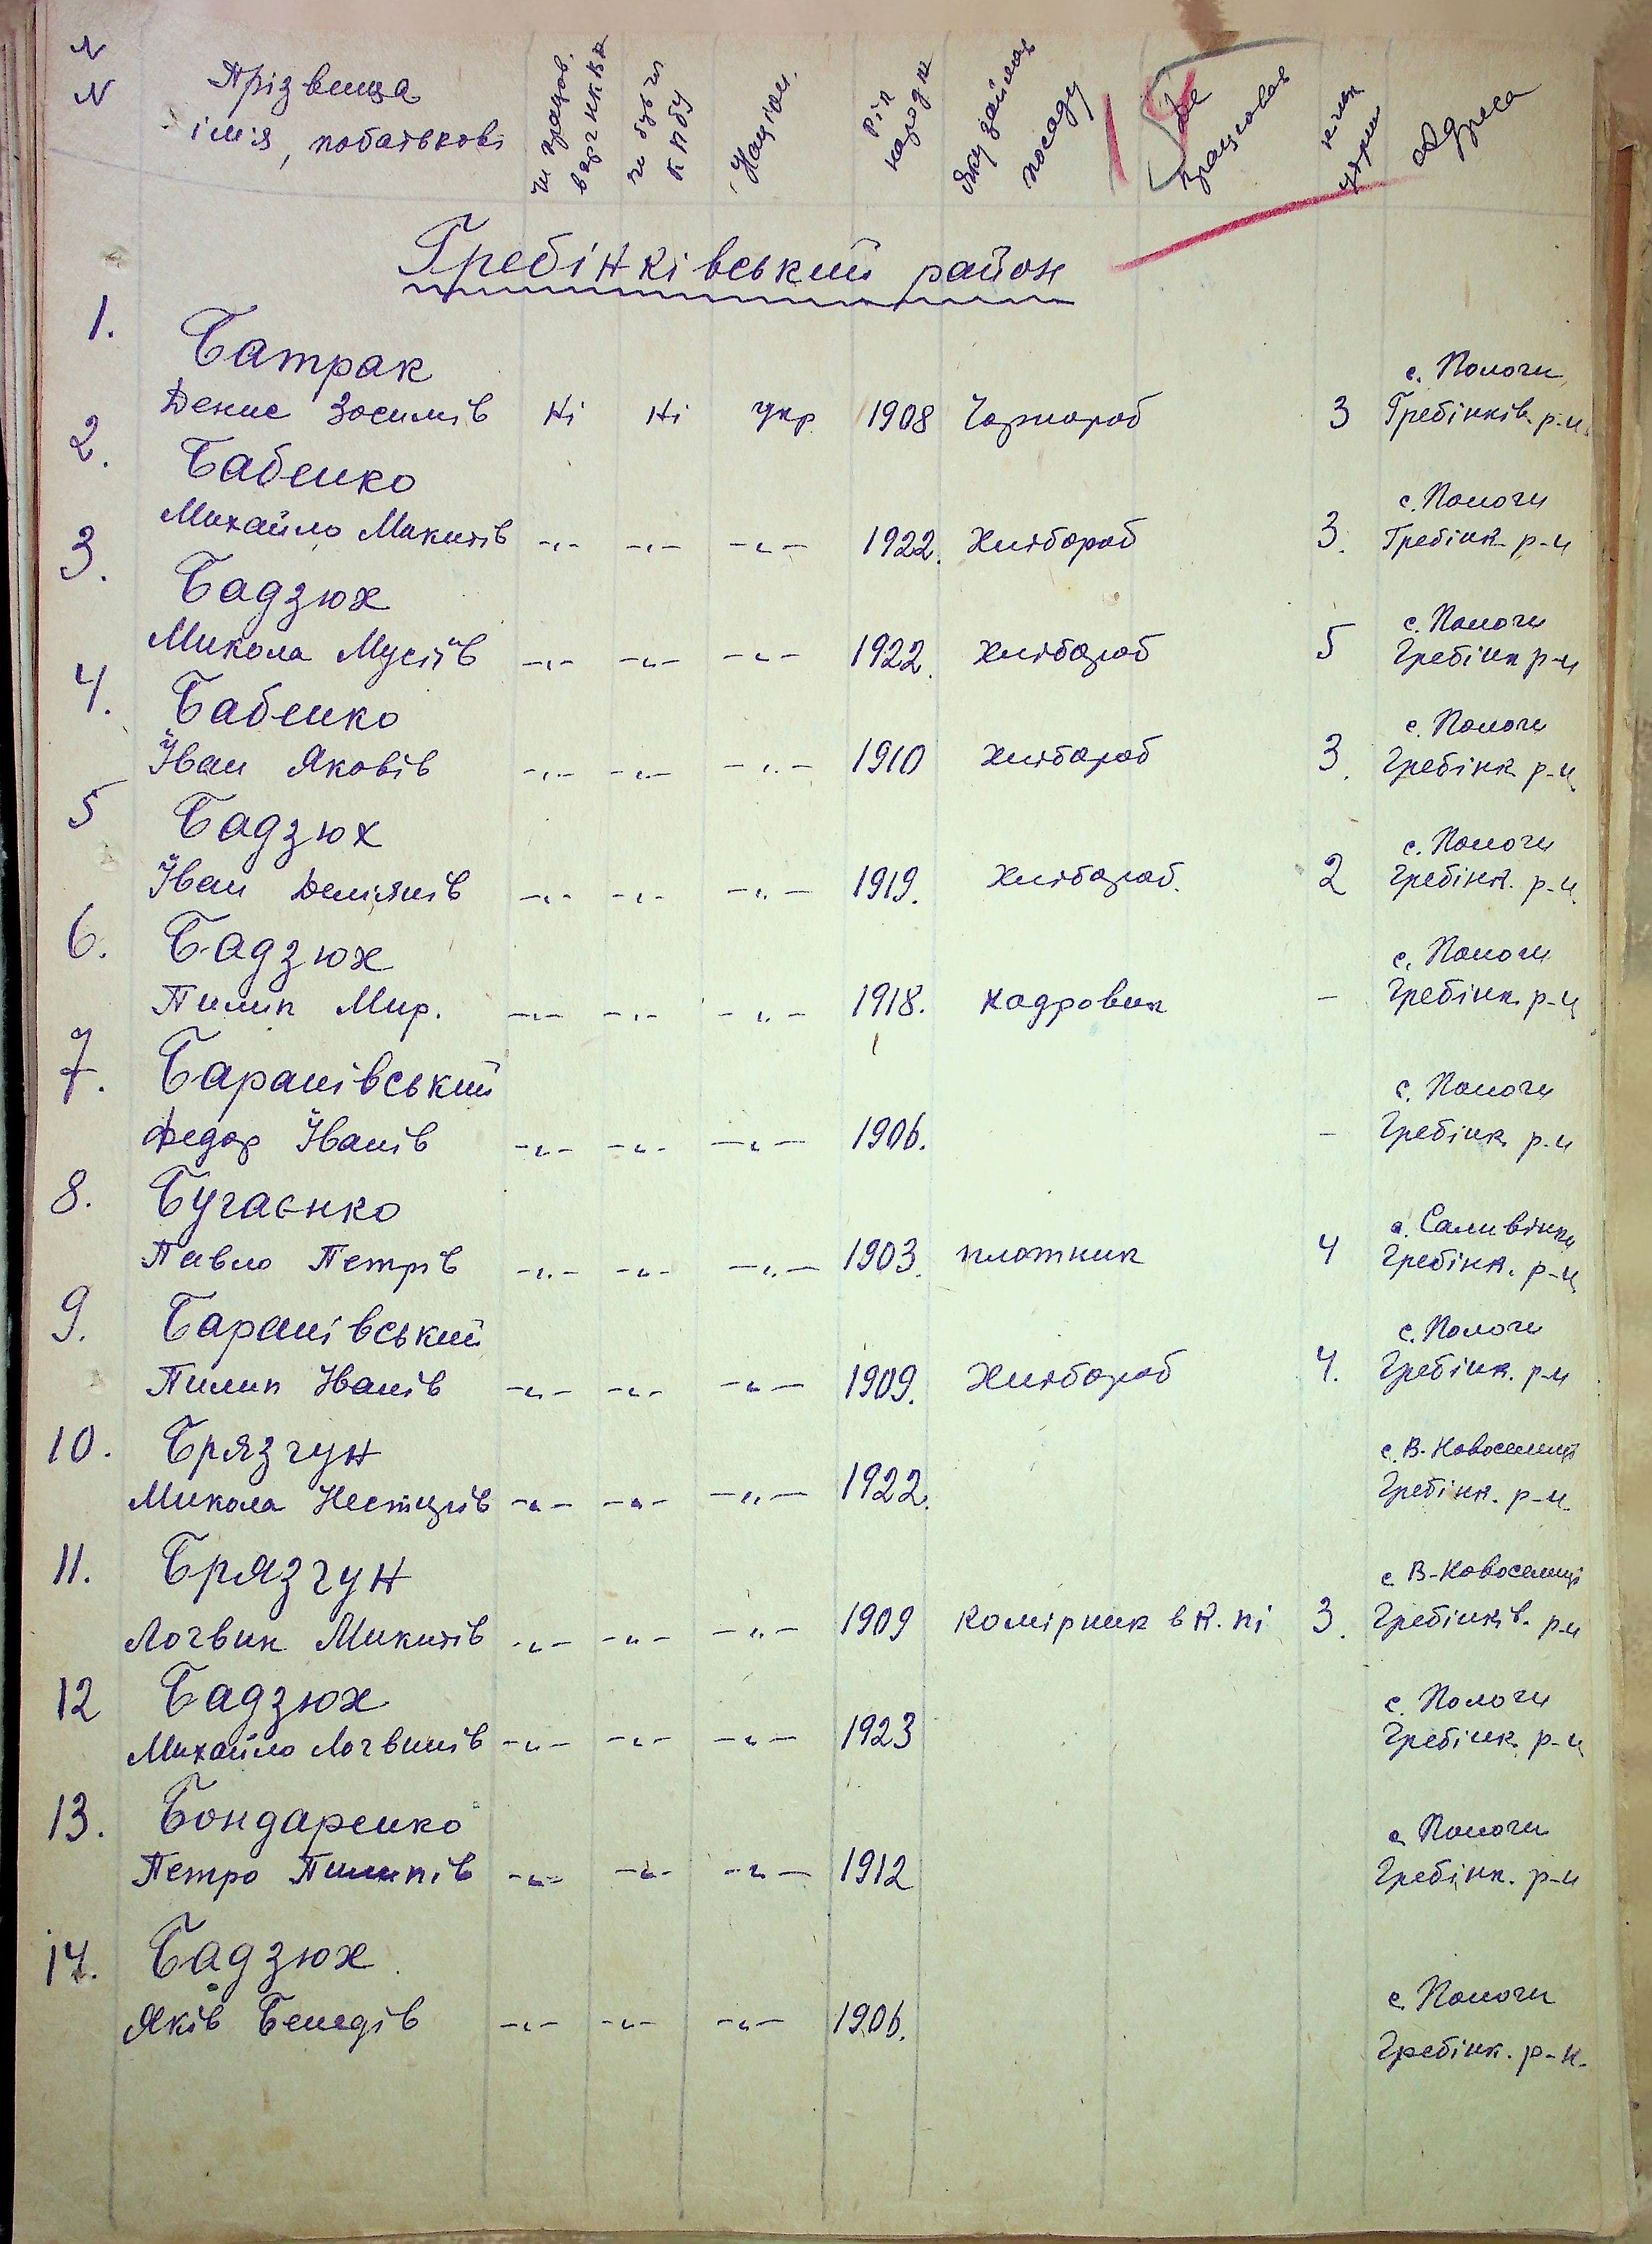 N N Прізвища ім'я, побатькові чи працюв. в орг НКВД чи був чл КПбУ Націон. Рік народж Яку займав посаду де працював к-ть утрим Адреса
15
Гребінківський район
1. Батрак с. Пологи
Денис Зосимів Ні Ні укр 1908 Чорнороб 3 Гребінків. р-н.
2. Бабенко с. Пологи
Михайло Микитів -"- -"- -"- 1922. Хлібороб 3. Гребінк р-н
3. Бадзюх с. Пологи
Микола Мусіїв -"- -"- -"- 1922. Хлібороб 5 Гребінк р-н
4. Бабенко с. Пологи
Іван Яковів -"- -"- -"- 1910 Хлібороб 3. Гребінк р-н
5 Бадзюх с. Пологи
Іван Дем'янів -"- -"- -"- 1919. Хлібороб. 2 Гребінк. р-н.
6. Бадзюх с. Пологи
Пилип Мир. -"- -"- -"- 1918. кадровик - Гребінк р-н
7. Баранівський с. Пологи
Федор Іванів -"- -"- -"- 1906. - Гребінк р-н
8. Бугаєнко с. Саливінки
Павло Петрів -"- -"- -"- 1903. плотник 4 Гребінк. р-н
9. Баранівський с. Пологи
Пилип Іванів -"- -"- -"- 1909. Хлібороб 4. Гребінк. р-н
10. Брязгун с. В-Новоселиці
Микола Несторів -"- -"- -"- 1922. Гребінк. р-н.
11. Брязгун с В-Новоселиці
Логвин Микитів -"- -"- -"- 1909 комірник в К. пі 3. Гребінків. р-н
12 Бадзюх с. Пологи
Михайло Логвинів -"- -"- -"- 1923 Гребінк р-н
13. Бондаренко с Пологи
Петро Пилипів -"- -"- -"- 1912 Гребінк. р-н
14. Бадзюх с. Пологи
Яків Бенедів -"- -"- -"- 1906. Гребінк. р-н.